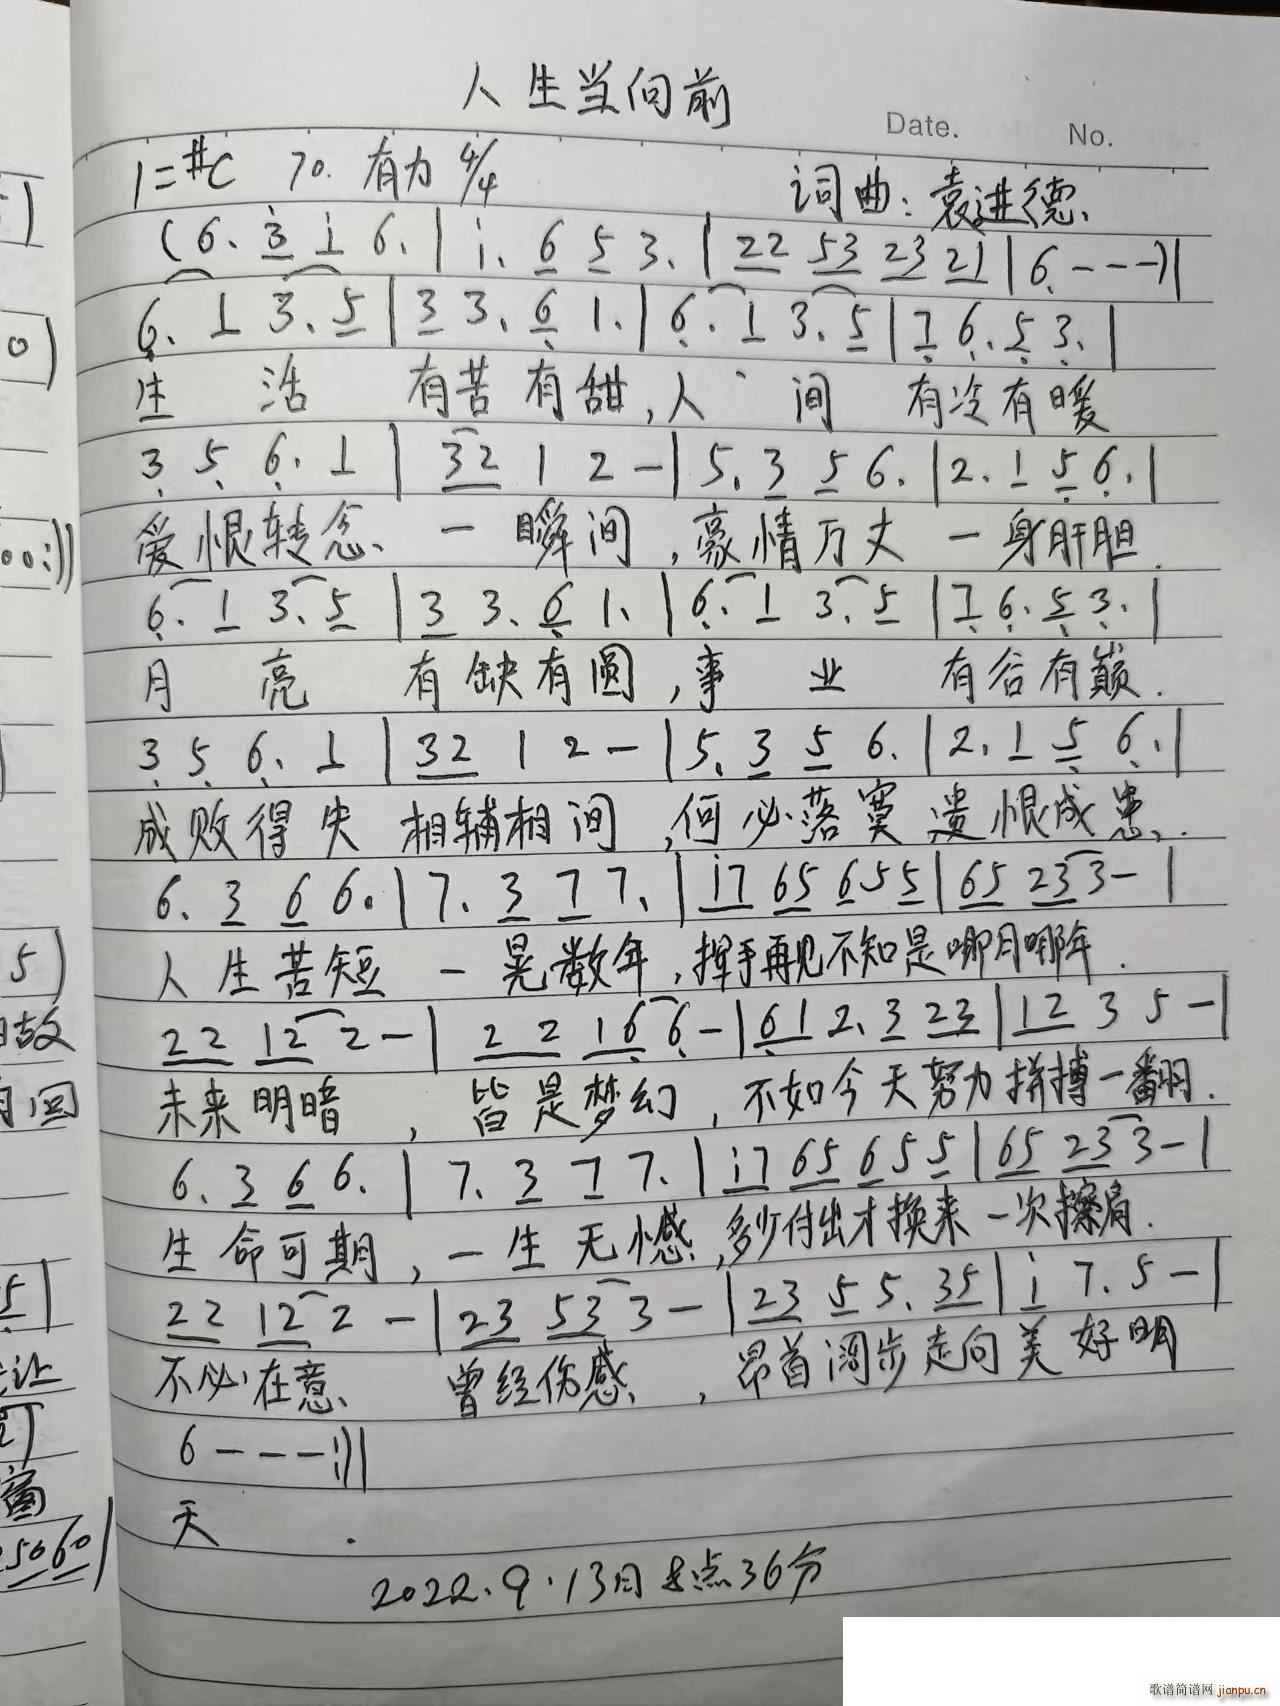 人生当向前
Date. No.
1=#C 70. 有力 4/4 词曲:袁进德.
(6. 3 i 6. | i. 6 5 3. | 22 53 23 21 | 6 - - - ) |
6. 1 3. 5 | 3 3. 6 1. | 6. 1 3. 5 | 7 6. 5 3. |
生 活 有苦有甜,人 间 有冷有暖
3 5 6. 1 | 32 1 2 - | 5. 3 5 6. | 2. 1 5 6. |
爱恨转念、一瞬间,豪情万丈一身肝胆.
6. 1 3. 5 | 3 3. 6 1. | 6. 1 3. 5 | 7 6. 5 3. |
月 亮 有缺有圆,事 业 有谷有巅.
3 5 6. 1 | 32 1 2 - | 5. 3 5 6. | 2. 1 5 6. |
成败得失 相辅相间,何必落寞遗恨成患.
6. 3 6 6. | 7. 3 7 7. | i7 65 655 | 65 23 3 - |
人生苦短 一晃数年,挥手再见不知是哪月哪年.
22 12 2 - | 2 2 16 6 - | 61 2. 3 23 | 12 3 5 - |
未来明暗,皆是梦幻,不如今天努力拼搏一翻.
6. 3 6 6. | 7. 3 7 7. | i7 65 655 | 65 23 3 - |
生命可期,一生无憾,多少付出才换来一次擦肩.
22 12 2 - | 23 53 3 - | 23 5 5. 35 | i 7. 5 - |
不必在意、曾经伤感、,昂首阔步走向美好明
6 - - - :)||
天 .
2022.9.13日 点36分
0)
00:))
5)
故
5|
让
窗
25060|
歌谱简谱网 jianpu.cn